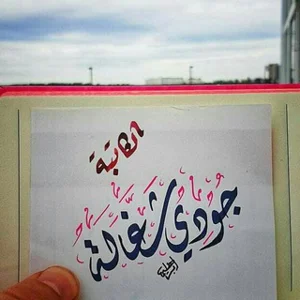 الكاتبة
جودي شغالة